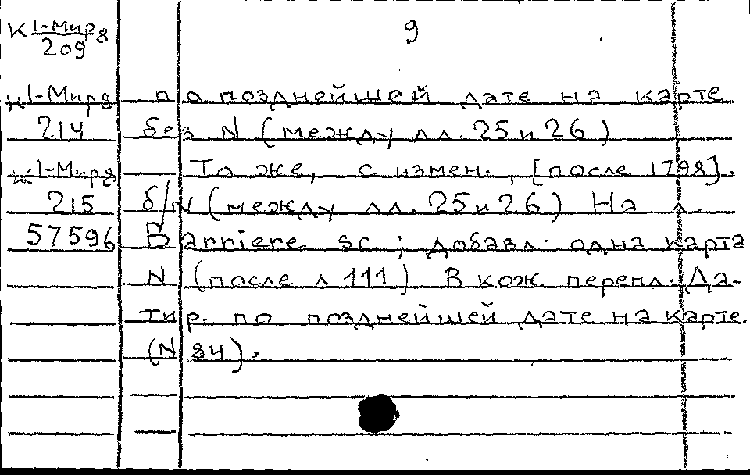 К 1-Мира 209
9
К 1-Мира 214
по позднейшей дате на карте
без N (между лл. 25 и 26)
К 1-Мира 215
То же, с измен., [после 1798].
б/N (между лл. 25 и 26) На л.
57596
Barriere sc; добавл. одна карта
N (после л 111). В кож. перепл. Да-
тир. по позднейшей дате на карте.
(N 84).